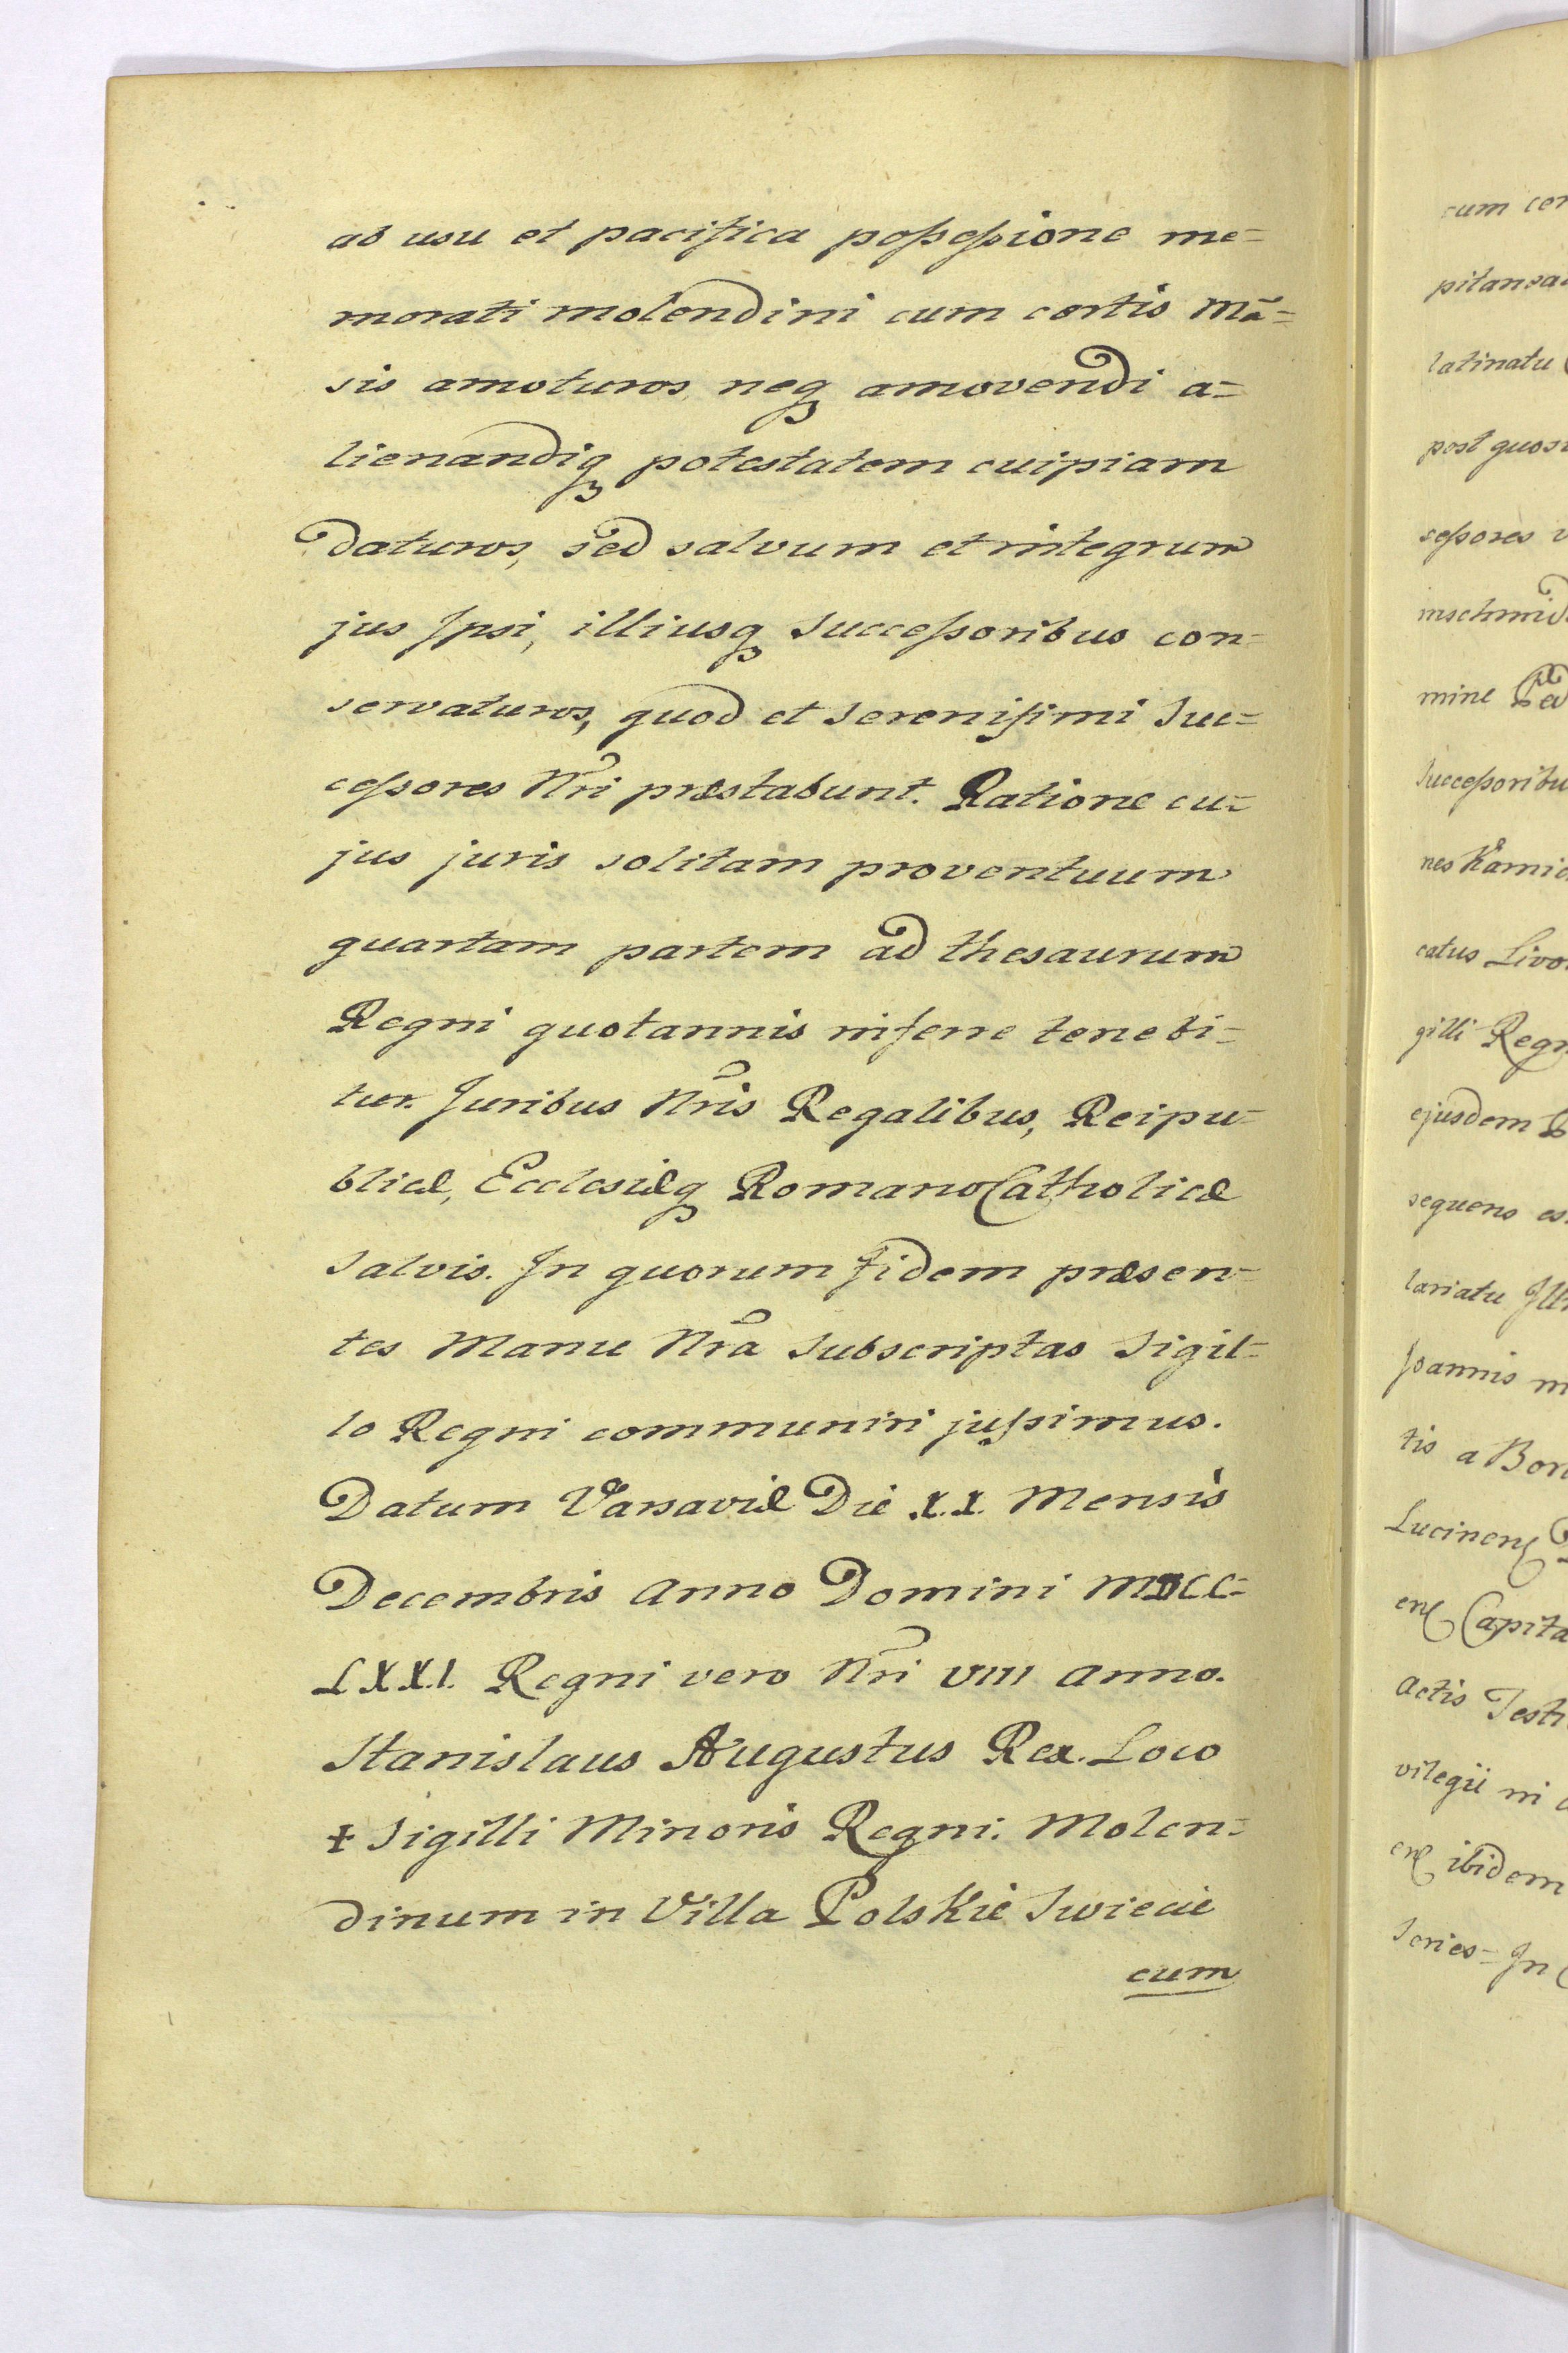 ab usu et pacifica poſseſsione me=
morati molendini cum certis Mã=
sis amoturos, neqꝫ amovendi a=
lienandiqꝫ potestatem cuipiam
daturos, sed salvum et integrum
jus Ipsi, illiusqꝫ Succeſsoribus con=
servaturos, quod et Sereniſsimi Suc=
ceſsores Nr̃i præstabunt. Ratione cu=
jus juris solitam proventuum
quartam partem ad thesaurum
Regni quotannis inferre tenebi=
tur. Juribus Nr̃is Regalibus, Reipu=
blicæ, Ecclesiæqꝫ Romano Catholicæ
Salvis. In quorum fidem præsen=
tes Manu Nr̃a Subscriptas Sigil=
lo Regni communiri juſsimus.
Datum Varsaviæ Die XX. Mensis
Decembris Anno Domini MDCC=
LXXI. Regni vero Nr̃i VIII anno.
Stanislaus Augustus Rex. Loco
+ Sigilli Minoris Regni. Molen=
dinum in Villa Polskie Swiecie
cum
cum
latinatu
post
seſsores
mine
Succeſsoribu
nes
catus Livo
gilli Regn
ejusdem
sequens es
lariatu Ill
Joannis m
tis a Bor
Capita
Actis Testi
vilegii in
ibidem
Series = In